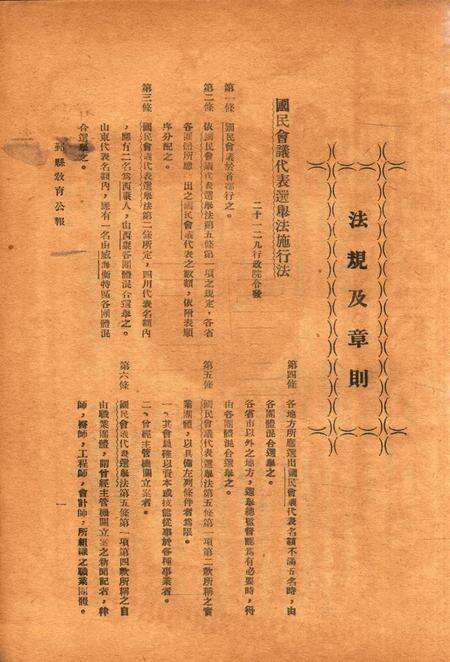 法規及章則
國民會議代表選舉法施行法
二十一二九行政院令發
第一條 國民會議於首都行之。
第二條 依國民會議代表選舉法第五條第一項之規定，各省
各團體所應 出之國民會議代表之數額，依附表順
序分配之。
第三條 國民會議代表選舉法第二條所定，四川代表名額內
，應有二名為西康人，由西康各團體混合選舉之。
山東代表名額內，應有一名由威海衞特區各團體混
合選舉之。
第四條 各地方所應選出國民會議代表名額不滿五名時，由
各團體混合選舉之。
各省市以外之地方，選舉總監督認為有必要時，得
由各團體混合選舉之。
第五條 國民會議代表選舉法第五條第一項第二款所稱之實
業團體，以具備左列條件者為限。
一、其會員確以資本或技能從事於各種事業者。
二、曾經主管機關立案者。
第六條 國民會議代表選舉法第五條第一項第四款所稱之自
由職業團體，謂曾經主管機關立案之新聞記者，律
師，醫師，工程師，會計師，所組織之職業團體。
縣教育公報
一